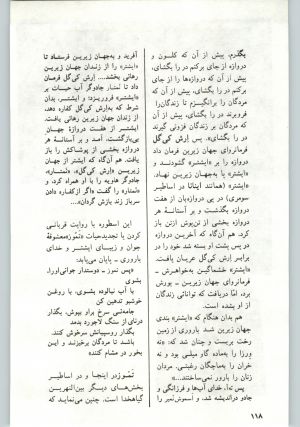 بگذرم. پیش از آن که کلون و
دروازه از جای برکنم در را بگشای،
پیش از آن که دروازه‌ها را از جای
برکنم در را بگشای، پیش از آن که
مردگان را برانگیزم تا زندگان را
فروبرند در را بگشای، پیش از آن
که مردگان بر زندگان فزونی گیرند
دروازه را بگشای». پس ارش کی‌گل
فرمانروای جهان زیرین فرمان داد
دروازه را بر «ایشتر» گشودند ـ و
«ایشتر» پا به‌جهان زیرین نهاد،
(همچون همتای خود اینانا در اساطیر
سومری) در وی دروازه‌بان از هفت
دروازه بگذشت و بر آستانهٔ هر
دروازه بخشی از تن‌پوش ازتن باز
کرد. هم آنگاه که آخرین دروازه
در پس پشت او بسته شد خود را در
برابر ارش کی‌گل عریان یافت.
«ایشتر» خشماگین به‌خواهرش ـ
فرمانروای جهان زیرین ـ یورش
برد. اما دریافت که توانائی زندگان
از او بشده است.
هم بدان هنگام که «ایشتر» بندی
جهان زیرین شد باروری از زمین
رخت بربست و چنان شد که: «نه
ورزا را به‌ماده گاو میلی بود و نه
خران را به‌ماچگان رغبتی. مردان
زنان را بارور نمی‌ساختند...»
پس «ئه‌آ»، خدای آب‌ها و فرزانگی و
جادو دراندیشه شد، و آسموش‌نمیر را
آفرید و به‌جهان زیرین فرستاد تا
«ایشتر» را از زندان جهان زیرین
رهائی بخشد.... ارش کی‌گل فرمان
داد تا نمتار جادوگر آب حیات بر
«ایشتر» فروریزد؛ و ایشتر، بدان
آب، از بندی که بر پا داشت رست و
از زندان جهان زیرین رهائی یافت.
ایشتر از هفت دروازهٔ جهان
بازگشت، آمد و بر آستانهٔ هر
دروازه بخشی از پوشاکش را باز
یافت. هم آن‌گاه که ایشتر از جهان
زیرین «ارش کی‌گل»، «نمتار»،
جادوگر هاویه را با او همراه کرد، و
«نمتار» را گفت «اگر از کفاره دادن
سرباز زند بازش گردان»...
این اسطوره با روایت قربانی
کردن یا تجدیدحیات «تموز» معشوقهٔ
جوان و زیبای ایشتر ـ و خدای
باروری ـ پایان می‌یابد:
«پس تموز ـ دوستدار جوانی‌او را،
بشوی
با آب نیالوده بشوی، با روغن
خوشبو تدهین کن
جامه‌ئی سرخ براو بپوش، بگذار
درنای از سنگ لاجورد بدمد
بگذار روسپیانش سرخوش کنند.
باشد تا مردگان برخیزند و این
بخور در مشام کشند»
تموز در اینجا و در اساطیر
بخش‌های دیگر بین‌النهرین
گیاهخدا است. چنین می‌نماید که
۱۱۸